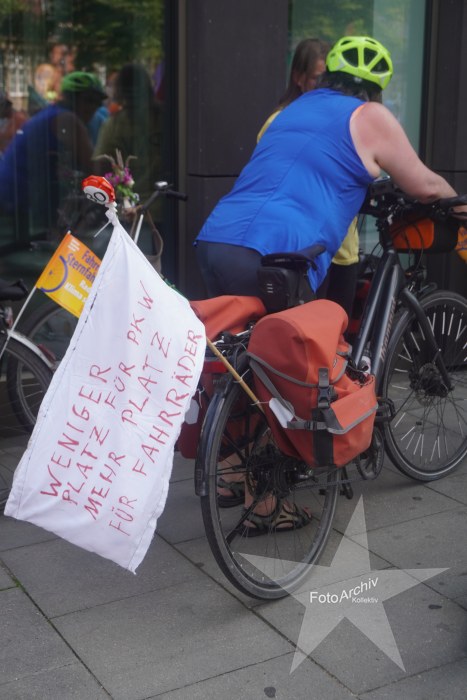 WENIGER
PLATZ FÜR PKW
MEHR PLATZ
FÜR FAHRRÄDER
Sternfahrt
FotoArchiv
Kollektiv